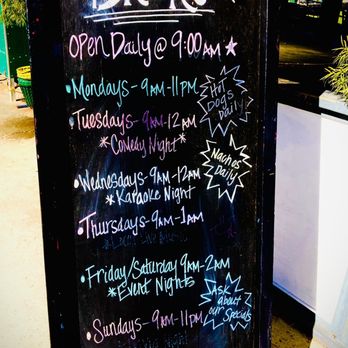 Open Daily @ 9:00am
Mondays - 9am-11pm
Hot
Dogs
Daily
Tuesdays - 9am-12am
*Comedy Night*
Nachos
Daily
Wednesdays - 9am-12am
*Karaoke Night
Thursdays - 9am-1am
Friday/Saturday 9am-2am
*Event Nights
Ask
about
our
Specials
Sundays - 9am-11pm